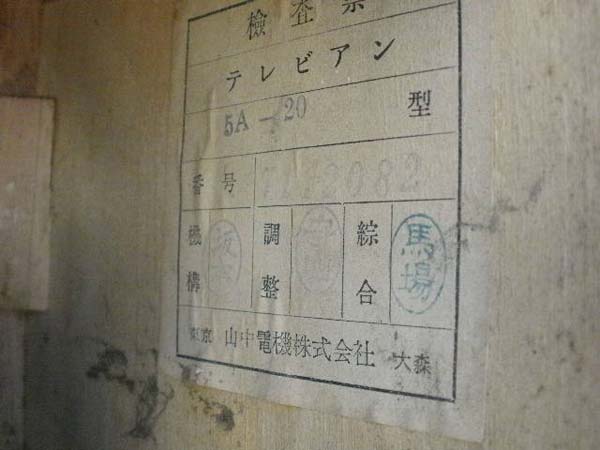 檢査票
テレビアン
5A-20 型
番号 2082
機構 調整 綜合 馬場
東京 山中電機株式会社 大森